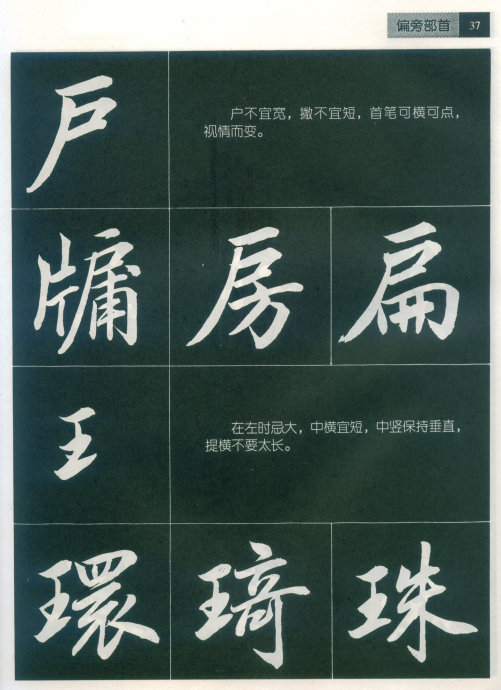 偏旁部首 37
户
户不宜宽，撇不宜短，首笔可横可点，
视情而变。
牗 房 扁
王
在左时忌大，中横宜短，中竖保持垂直，
提横不要太长。
環 琦 珠